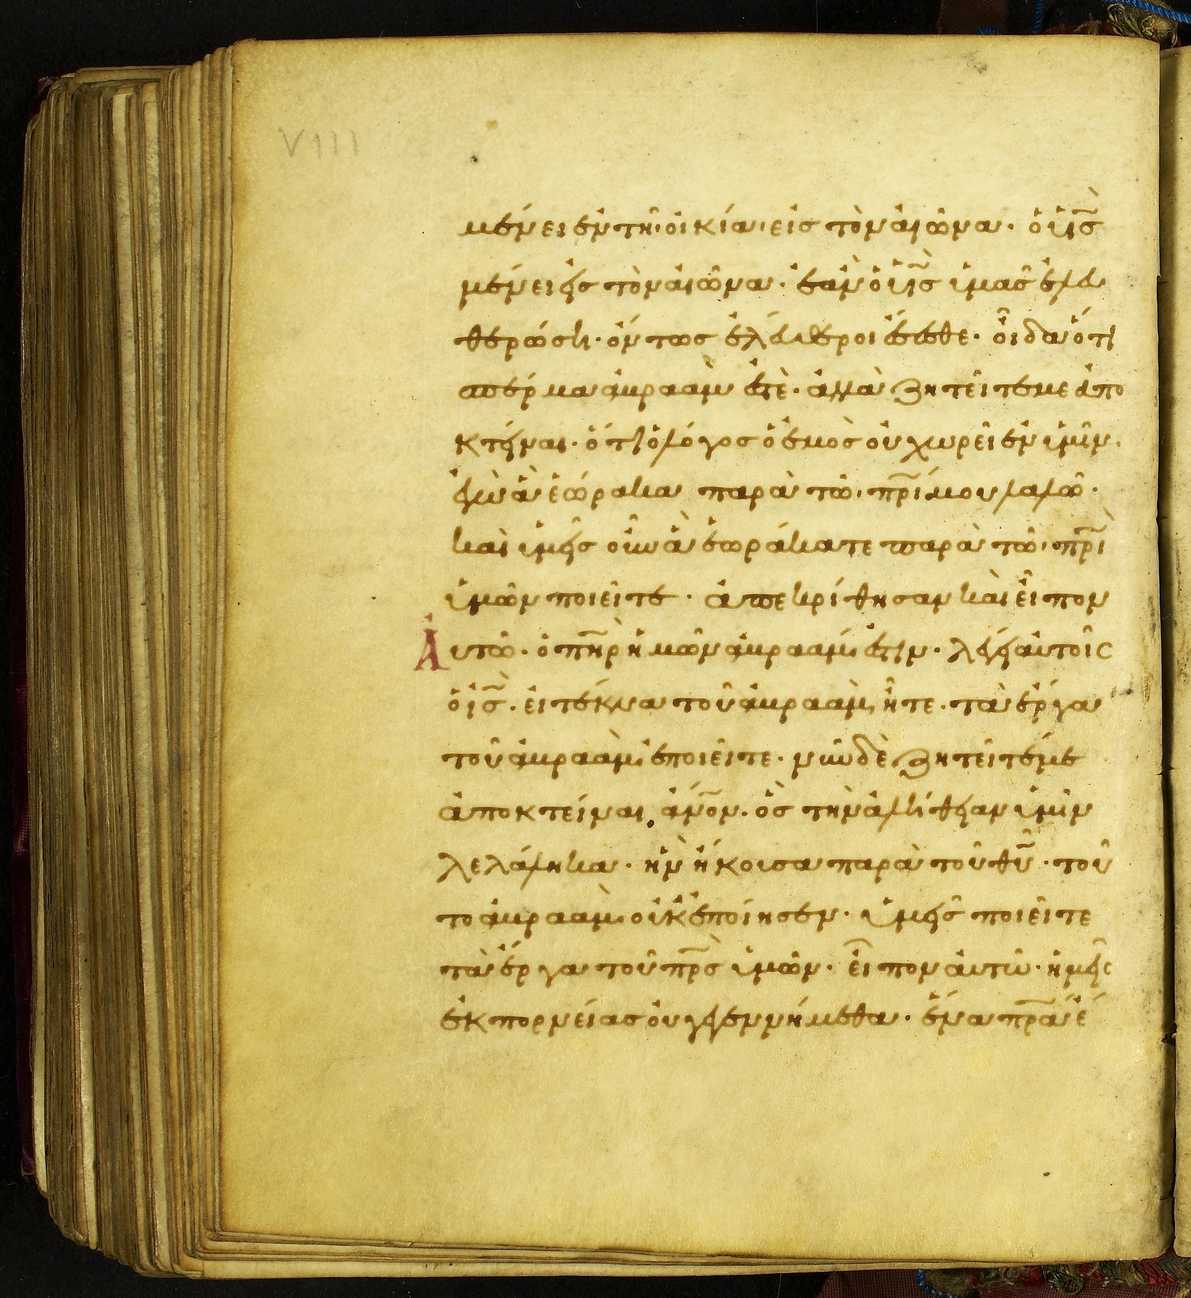 VIII
μένει ἐν τῆ οἰκία εἰς τὸν αἰῶνα· ὁ υἱὸς
μένει εἰς τὸν αἰῶνα· ἐὰν ὁ υἱὸς ὑμᾶς ἐλευ
θερώση· ὄντως ἐλεύθεροι ἔσεσθε· οἶδα ὅτι
σπέρμα ἀβραάμ ἐστὲ· ἀλλὰ ζητεῖτέ με ἀπο
κτεῖναι· ὅτι ὁ λόγος ὁ ἐμὸς οὐ χωρεῖ ἐν ὑμῖν·
ἐγὼ ἃ ἑώρακα παρὰ τῶ πρί μου λαλῶ·
καὶ ὑμεῖς οὖν ἃ ἑωράκατε παρὰ τῶ πρὶ
ὑμῶν ποιεῖτε· ἀπεκρίθησαν καὶ εἶπον
Αὐτῶ· ὁ πηρ ἡμῶν ἀβραάμ ἐστιν· λέγει αὐτοῖς
ὁ ις· εἰ τέκνα τοῦ ἀβραὰμ ἦτε· τὰ ἔργα
τοῦ ἀβραὰμ ἐποιεῖτε· νῦν δὲ ζητεῖτέ με
ἀποκτεῖναι, ἄνον· ὃς τὴν ἀλήθειαν ὑμῖν
λελάληκα· ἣν ἤκουσα παρὰ τοῦ θυ· τοῦ
το ἀβραὰμ οὐκ ἐποίησεν· ὑμεῖς ποιεῖτε
τὰ ἔργα τοῦ πρς ὑμῶν· εἶπον αὐτῶ· ἡμεῖς
ἐκ πορνείας οὐ γεγεννήμεθα· ἕνα πρα ἔ